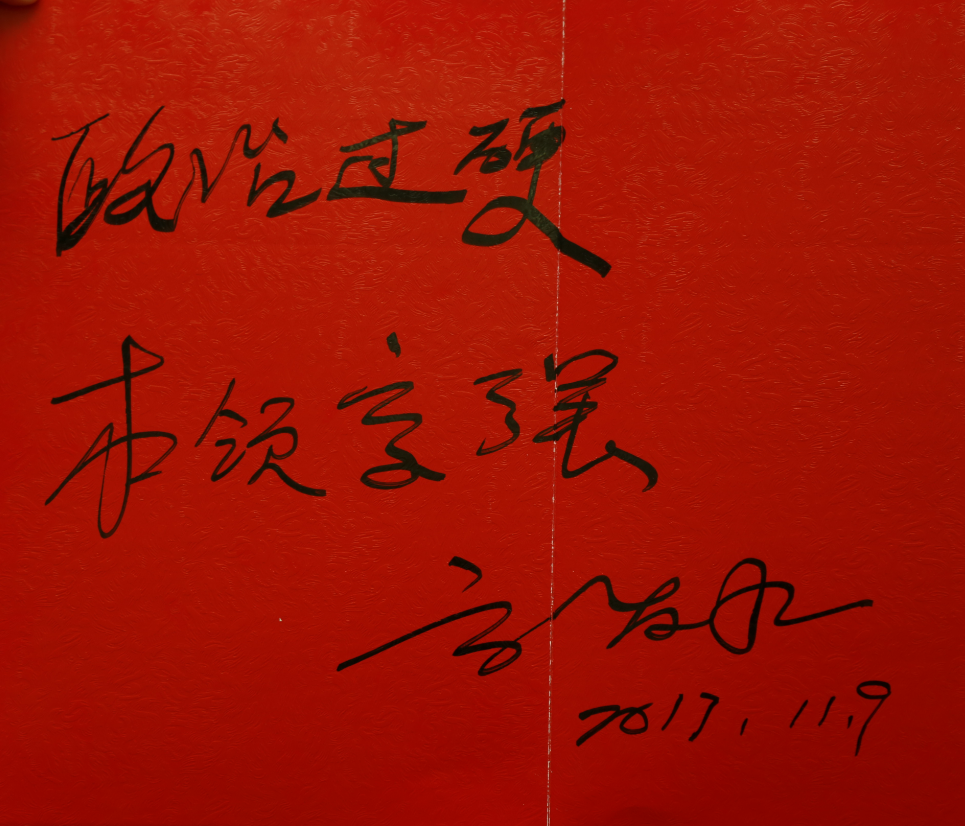 政治过硬
本领高强
2017.11.9